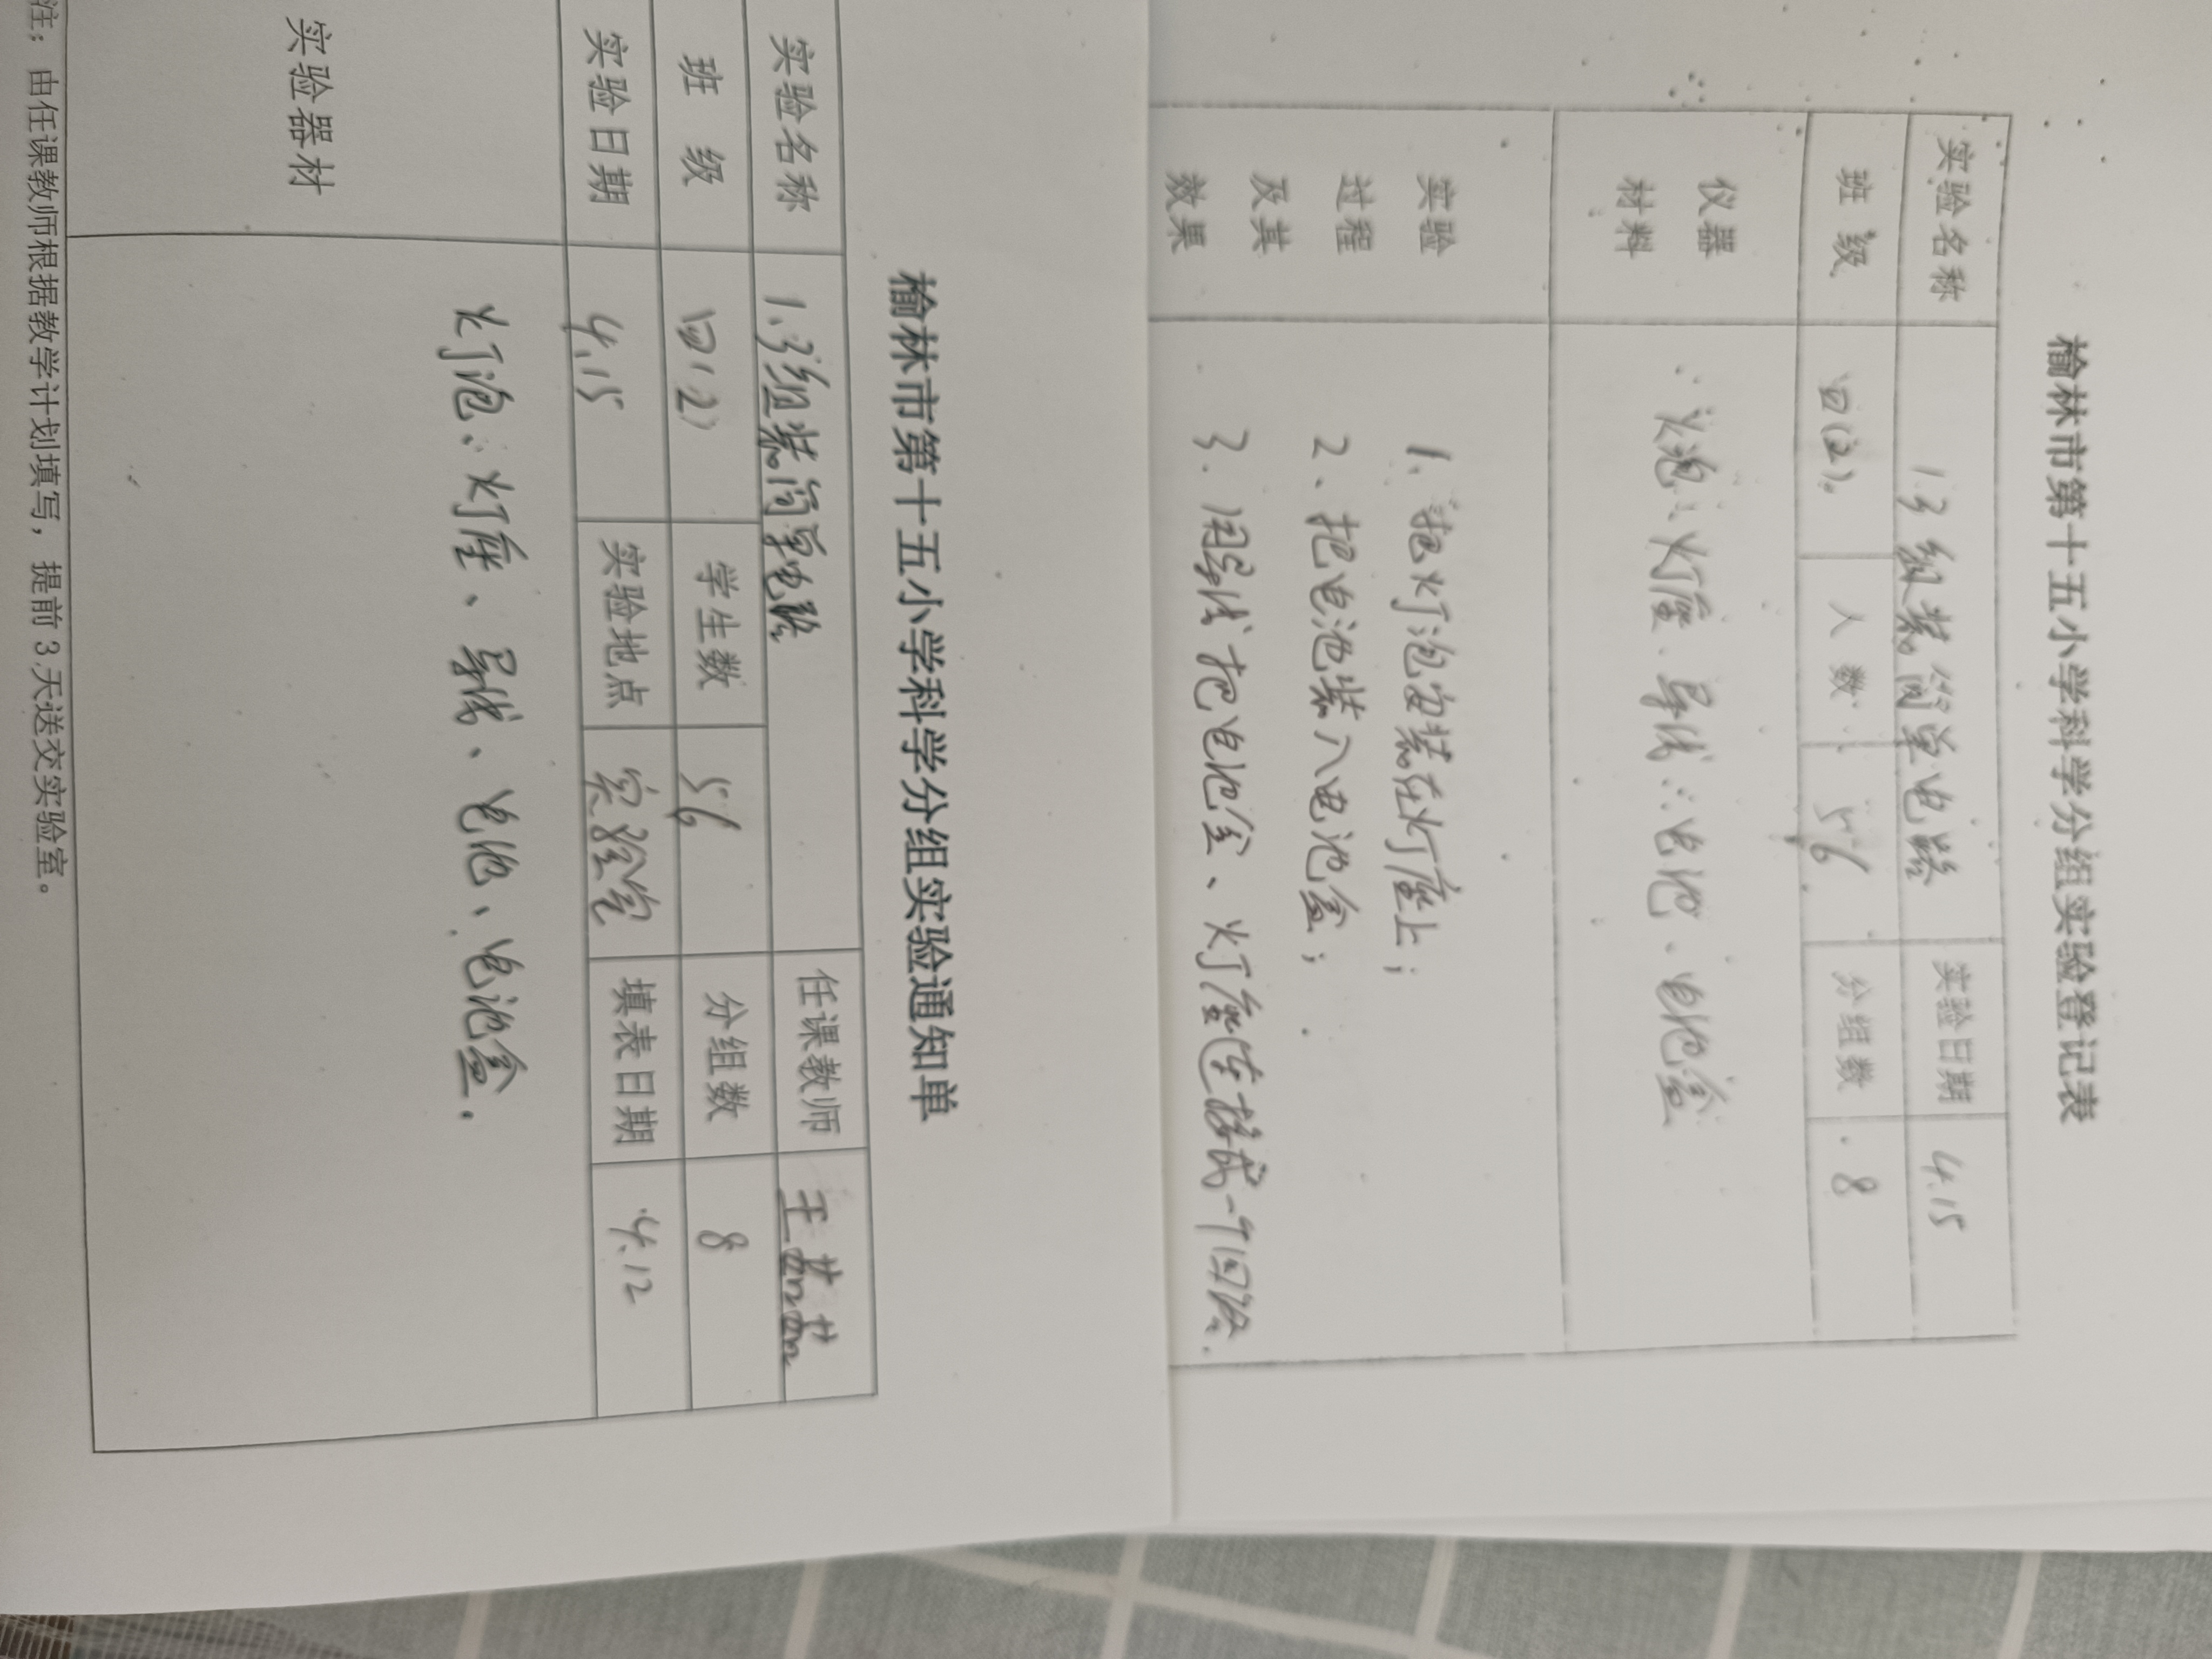 榆林市第十五小学科学分组实验登记表
实验名称 13 组装简单电路 实验日期 4.15
班 级 四(2). 人 数 56 分组数 8
仪器
材料
灯泡、灯座、导线、电池、电池盒
实验
过程
及其
效果
1、把灯泡安装在灯座上;
2、把电池装入电池盒;
3.用导线把电池盒、灯座连接成一个回路.
榆林市第十五小学科学分组实验通知单
实验名称 1.3组装简单电路 任课教师 王茹茹
班 级 四(2) 学生数 56 分组数 8
实验日期 4.15 实验地点 实验室 填表日期 4.12
实验器材 灯泡、灯座、导线、电池、电池盒.
注:由任课教师根据教学计划填写,提前 3 天送交实验室。